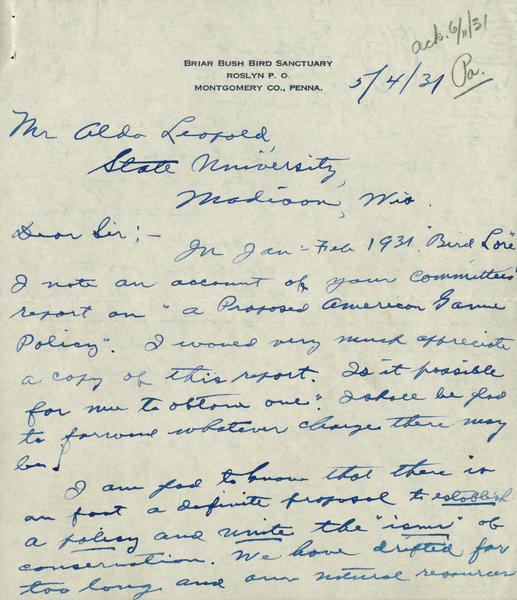 ack. 6/11/31
Pa.
BRIAR BUSH BIRD SANCTUARY
ROSLYN P. O.
MONTGOMERY CO., PENNA.
5/4/31
Mr Aldo Leopold,
State University,
Madison, Wis.
Dear Sir:-
In Jan-Feb 1931 "Bird Lore"
I note an account of your committees
report on "a Proposed American Game
Policy". I would very much appreciate
a copy of this report. Is it possible
for me to obtain one? I shall be glad
to forward whatever charge there may
be.
I am glad to know that there is
an foot a definite proposal to establish
a policy and unite the "isms" of
conservation. We have drifted far
too long and our natural resources